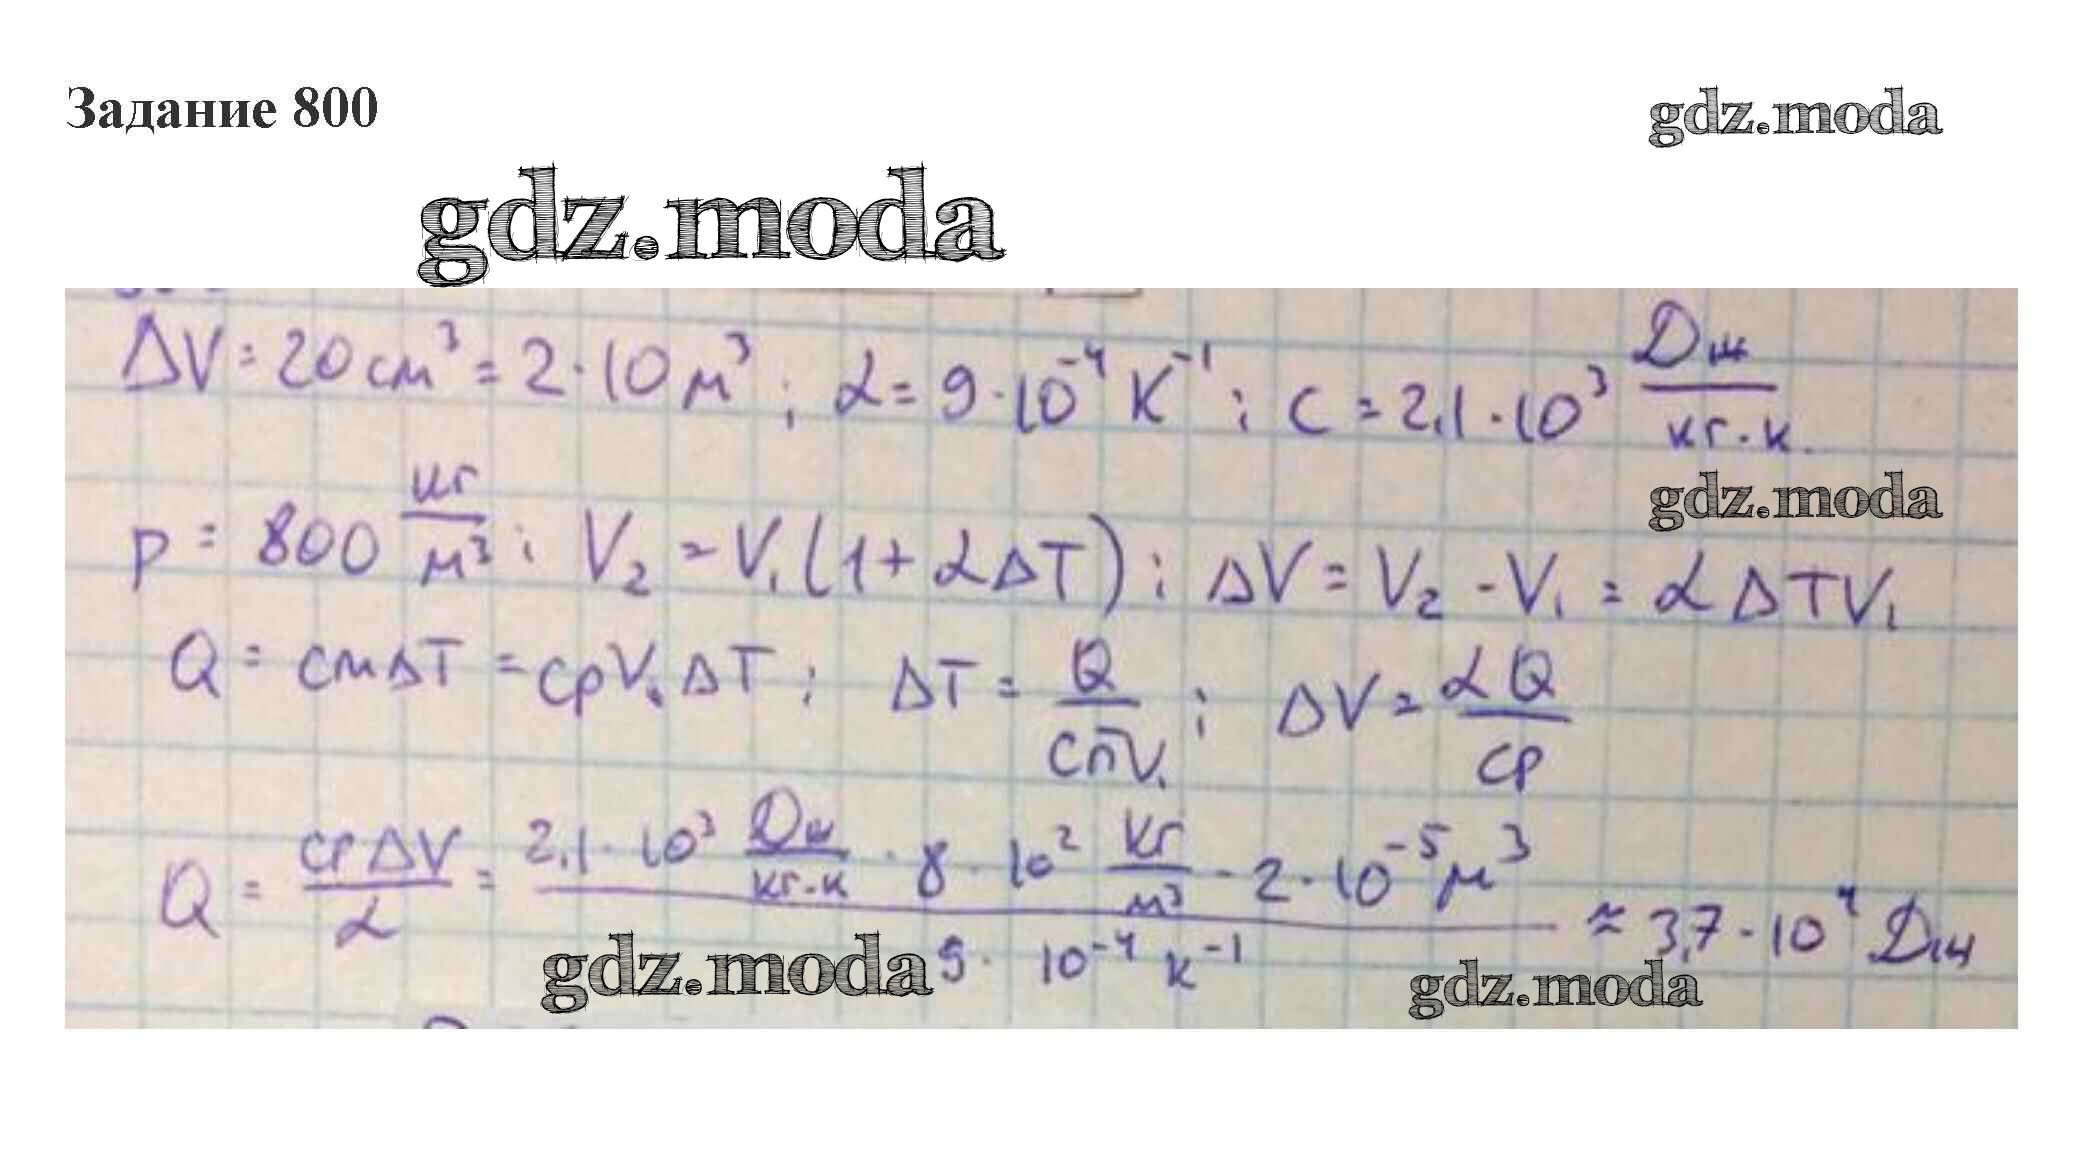 Задание 800
gdz.moda
gdz.moda
ΔV = 20 см³ = 2·10 м³ ; α = 9·10⁻⁴ К⁻¹ ; c = 2,1·10³ Дж/кг·к.
gdz.moda
p = 800 кг/м³ ; V₂ = V₁(1 + αΔT) ; ΔV = V₂ - V₁ = αΔTV₁
Q = cmΔT = cpV₁ΔT ; ΔT = Q/cпV₁ ; ΔV = αQ/cp
Q = cpΔV/α = 2,1·10³ Дж/кг·к · 8·10² кг/м³ · 2·10⁻⁵ м³ / 9·10⁻⁴ к⁻¹ ≈ 3,7·10⁴ Дж
gdz.moda
gdz.moda